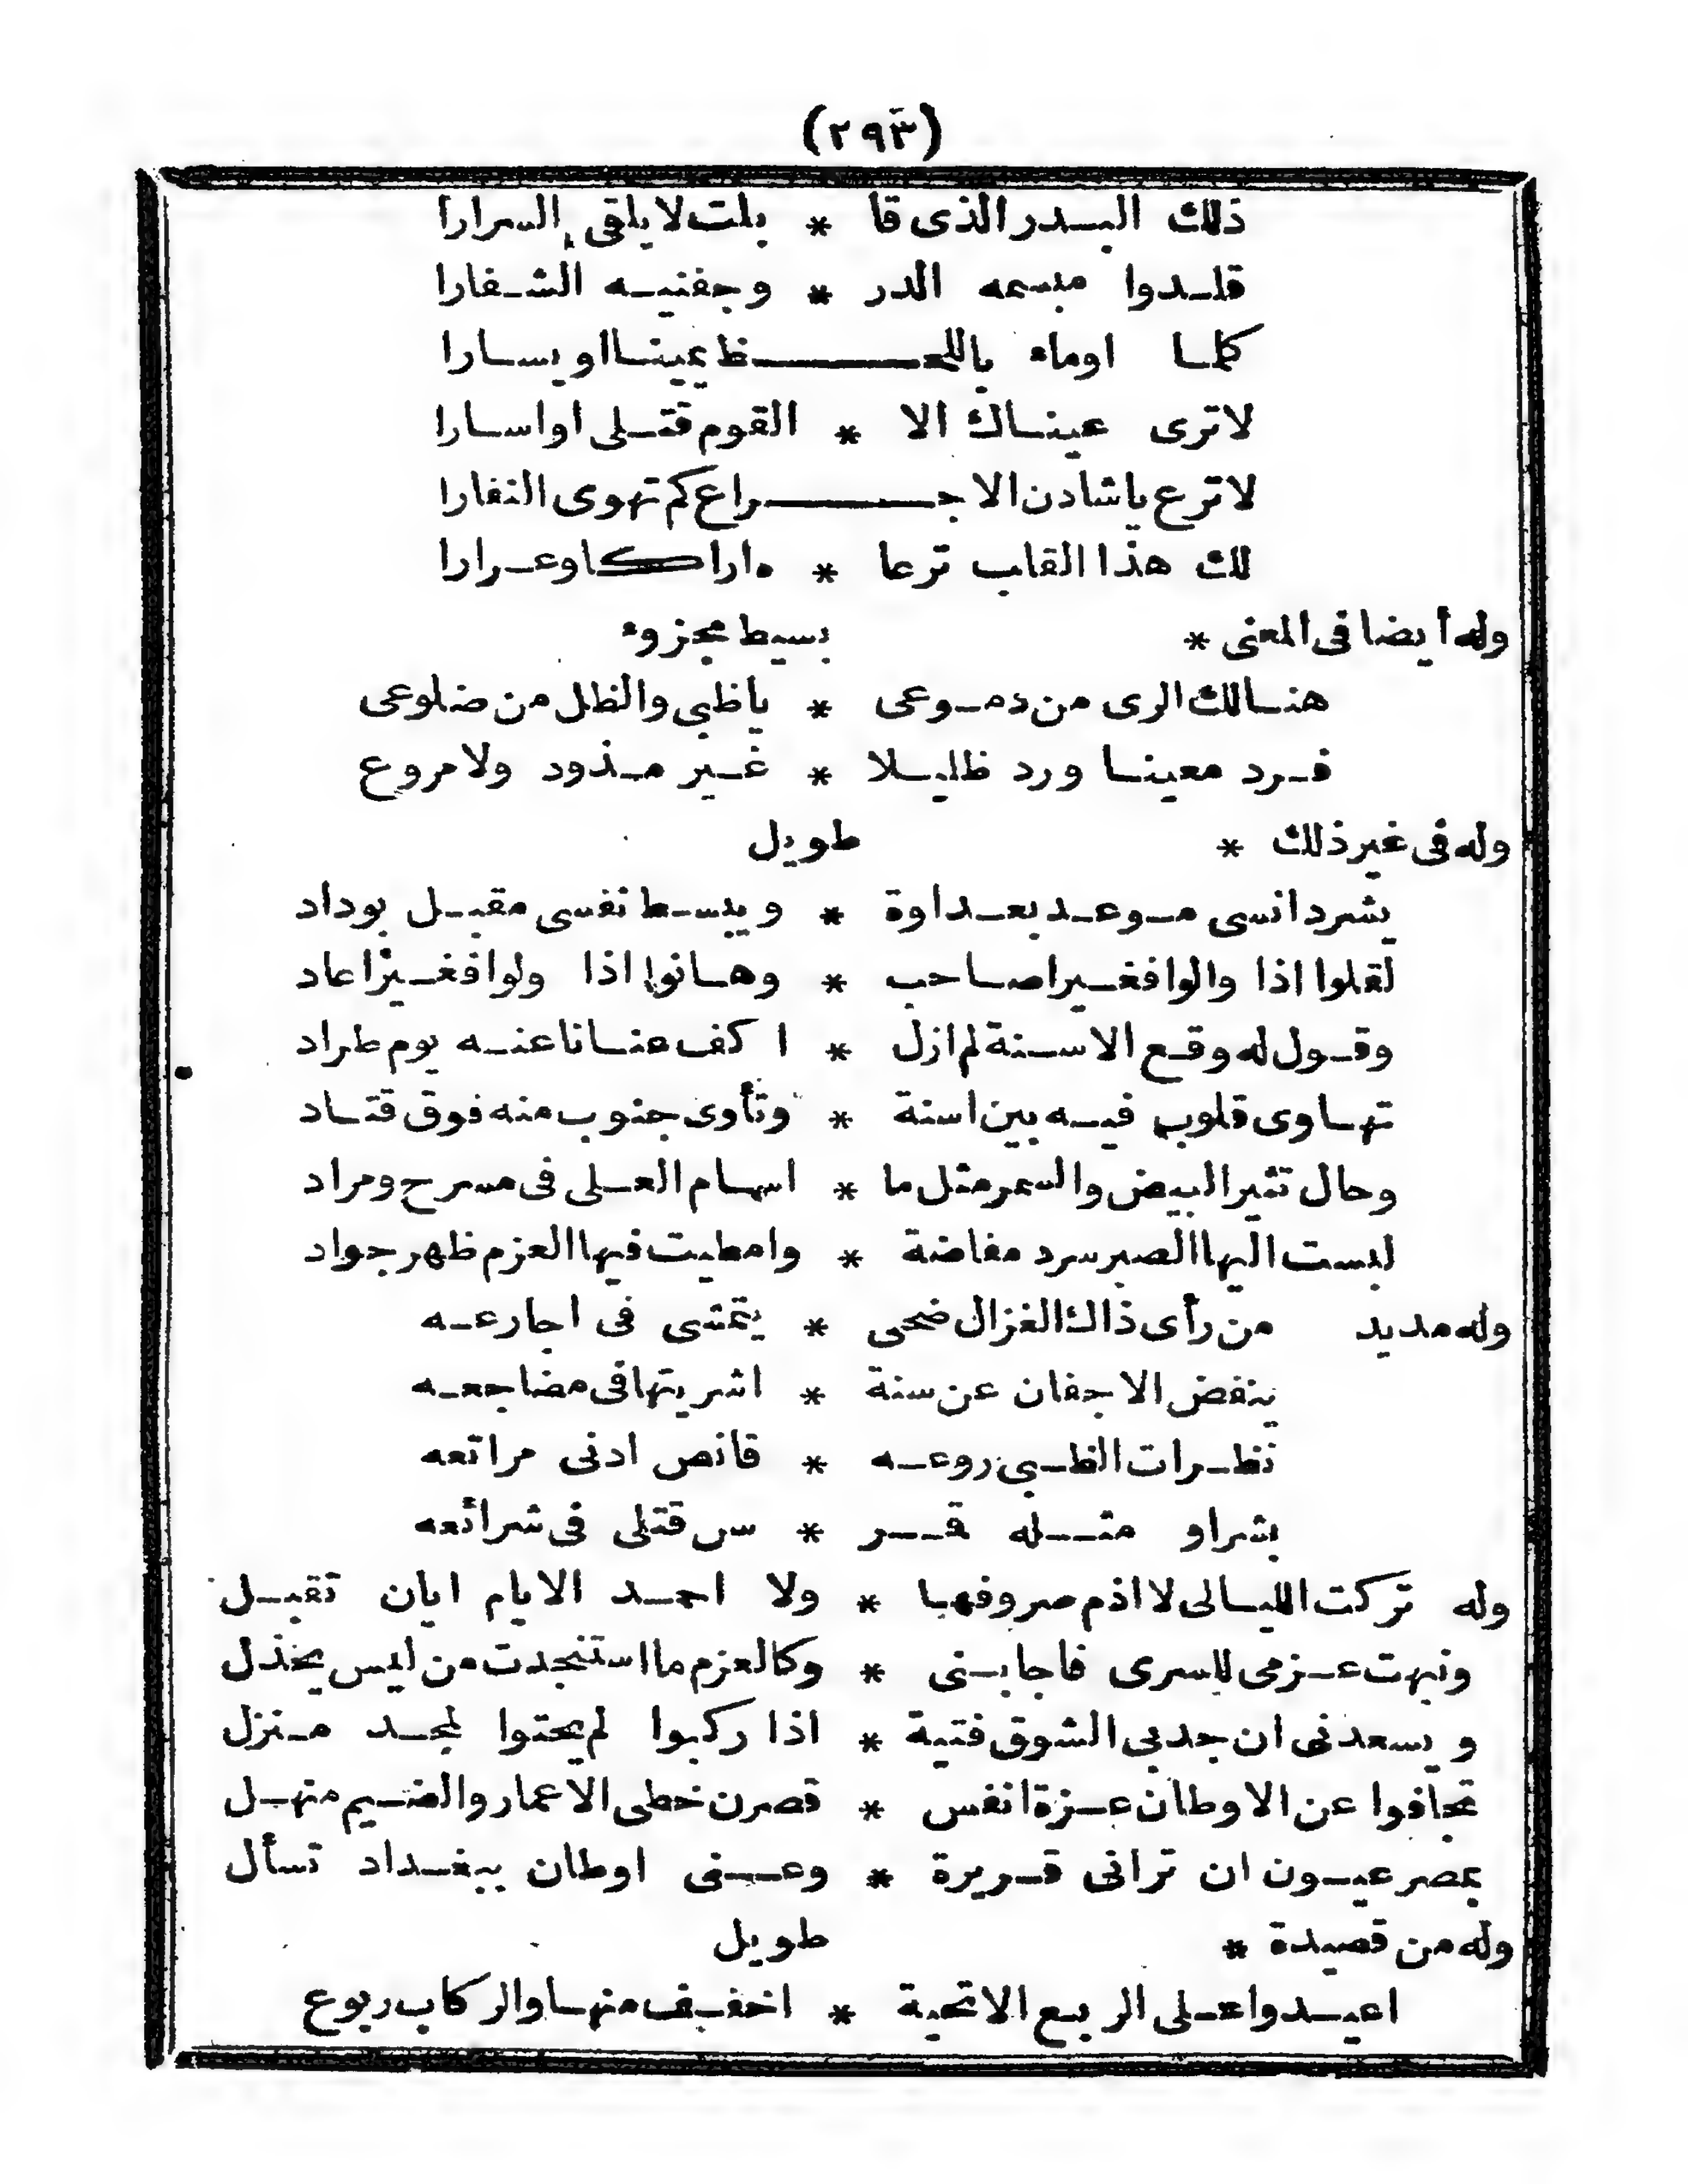 (٢٩٣)
ذلك البدر الذى قا * بلت لا يلقى السرارا
قلدوا مبسمه الدر * وجفنيه الشفارا
كلما اوماء باللحظ يمينا او يسارا
لا ترى عيناك الا * القوم قتلى او اسارا
لا ترع يا شادن الاجراع كم تهوى النفارا
لك هذا القلب ترعا * ه اراكا وعرارا
وله أيضا فى المعنى * بسيط مجزوء
هنالك الرى من دموعى * يا ظبى والظل من ضلوعى
فرد معينا ورد ظليلا * غير مذود ولا مروع
وله فى غير ذلك * طويل
يشرد انسى موعد بعداوة * ويبسط نفسى مقبل بوداد
لقلوا اذا والوا فغير اصاحب * وهانوا اذا ولوا فغير اعاد
وقول له وقع الاسنة لم ازل * اكف عنانا عنه يوم طراد
تهاوى قلوب فيه بين اسنة * وتأوى جنوب منه فوق قتاد
وحال تثير البيض والسمر مثل ما * اسهام العلى فى مسرح ومراد
لبست اليها الصبر سرد مفاضة * وامطيت فيها العزم ظهر جواد
وله مديد من رأى ذاك الغزال ضحى * يتمشى فى اجارعه
ينفض الاجفان عن سنة * اشربتها فى مضاجعه
نظرات الظبى روعه * قانص ادنى مراتعه
بشر او مثله قمر * سن قتلى فى شرائعه
وله تركت الليالى لا اذم صروفها * ولا احمد الايام ايان تقبل
ونبهت عزمى للسرى فاجابنى * وكالعزم ما استنجدت من ليس يخذل
ويسعدنى ان جد بى الشوق فتية * اذا ركبوا لم يحتوا لمجد منزل
تجافوا عن الاوطان عزة انفس * قصرن خطى الاعمار والضيم منهل
بمصر عيون ان ترانى قريرة * وعنى اوطان ببغداد تسأل
وله من قصيدة * طويل
اعيدوا على الربع الاتحية * اخفيف منها والركاب ربوع